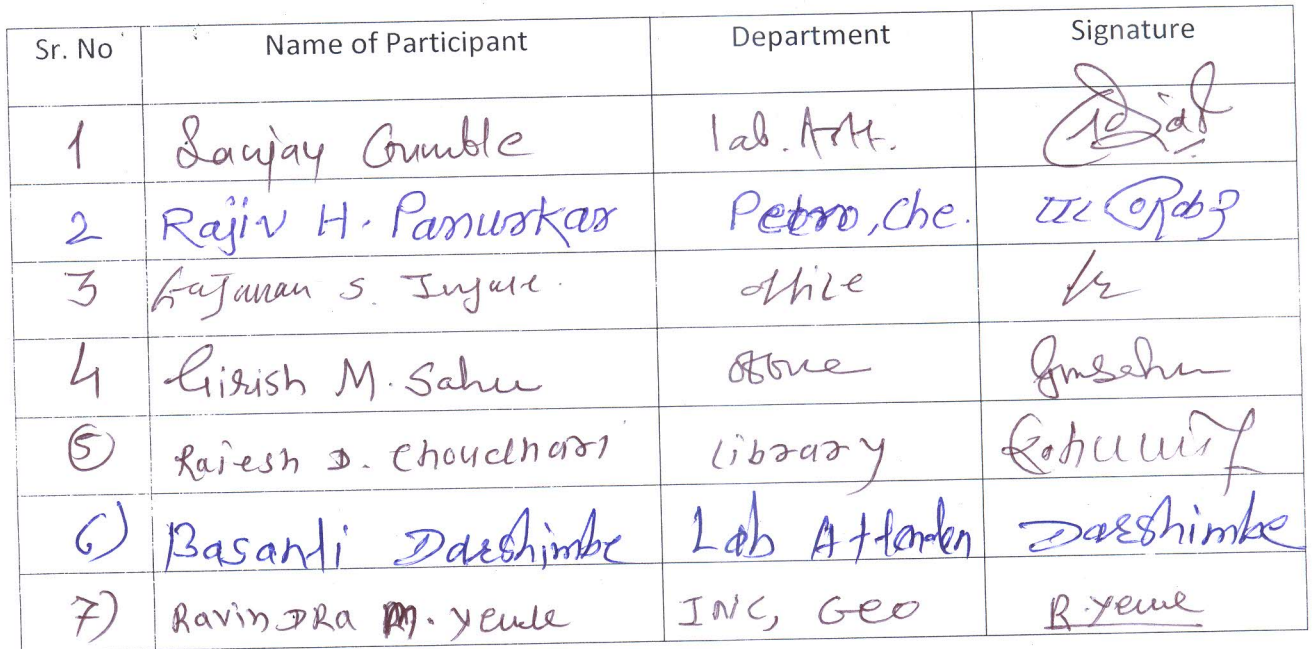 Sr. No Name of Participant Department Signature
1 Sanjay Gumble lab. Att.
2 Rajiv H. Panurkar Petro, Che.
3 Gajanan S. Ingale. office
4 Girish M. Sahu store Gmsahu
5 Rajesh D. Choudhari library
6) Basanti Darshimbe Lab Attenden Darshimbe
7) RavinDRa M. Yewle INC, GEO R.Yewle